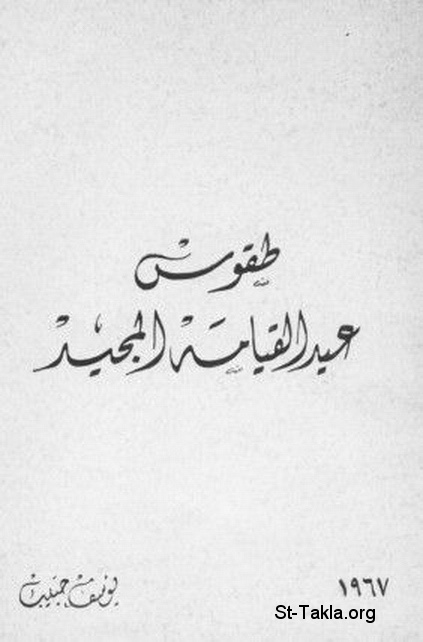 طقوس
عيد القيامة المجيد
١٩٦٧
يوسف حبيب
St-Takla.org